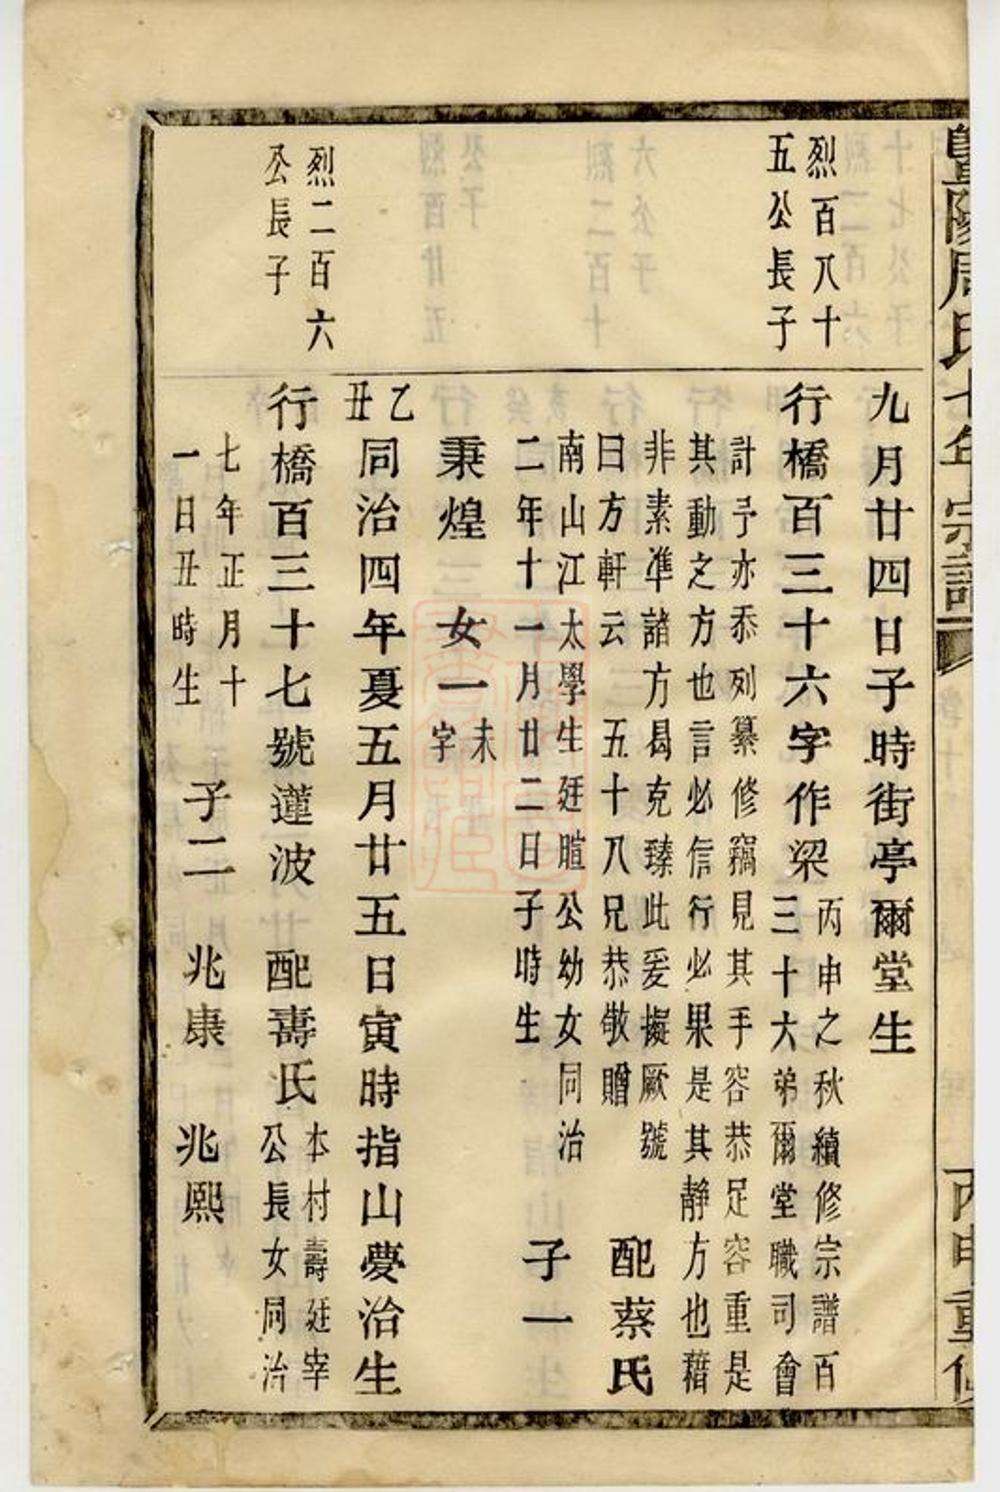 暨陽周氏十年宗譜
丙申重修
九月廿四日子時街亭爾堂生
烈百八十
五公長子
行橋百三十六字作梁
丙申之秋續修宗譜百
三十六弟爾堂職司會
計予亦忝列纂修竊見其手容恭足容重是
其動之方也言必信行必果是其靜方也藉
非素準諸方曷克臻此爰擬厥號
曰方軒云 五十八兄恭敬贈
配蔡氏
南山江太學生廷暄公幼女同治
二年十一月廿二日子時生
子一
秉煌 女一
未
字
乙
丑
同治四年夏五月廿五日寅時指山夢治生
烈二百六
公長子
行橋百三十七號蓮波 配壽氏
本村壽廷宰
公長女同治
七年正月十
一日丑時生
子二 兆康 兆熙